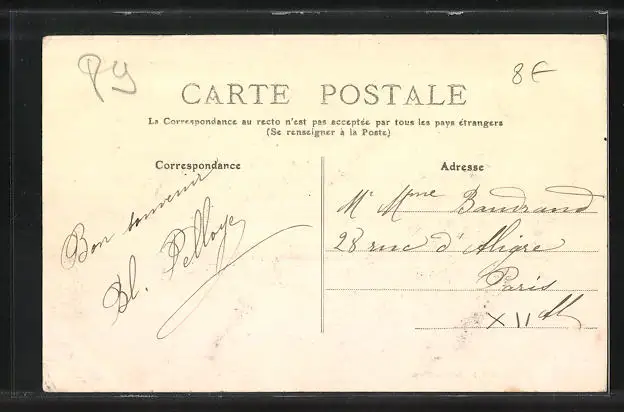 PY
8€
CARTE POSTALE
La Correspondance au recto n'est pas acceptée par tous les pays étrangers
(Se renseigner à la Poste)
Correspondance
Bon souvenir
Bl. Pelloye
Adresse
Mr Mme Baudrand
28 rue d'Aligre
Paris
XII